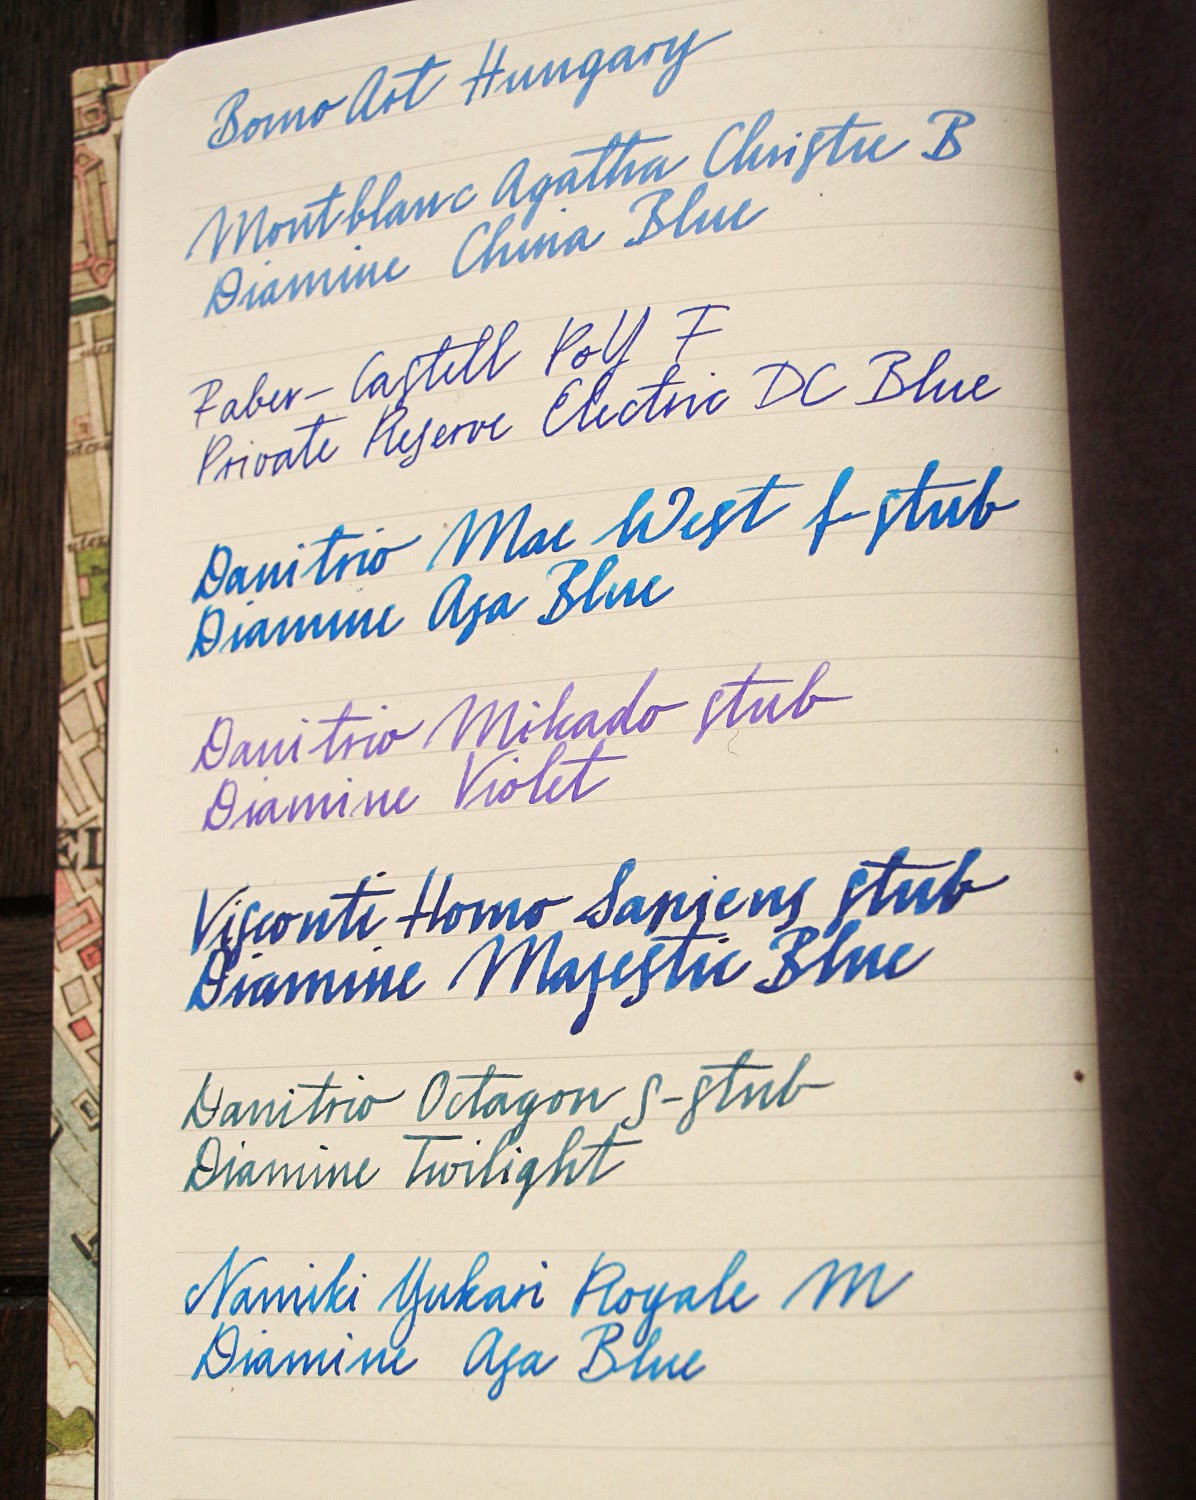 Bomo Art Hungary
Montblanc Agatha Christie B
Diamine China Blue
Faber-Castell Poly F
Private Reserve Electric DC Blue
Danitrio Mae West f-stub
Diamine Asa Blue
Danitrio Mikado stub
Diamine Violet
Visconti Homo Sapiens stub
Diamine Majestic Blue
Danitrio Octagon s-stub
Diamine Twilight
Namiki Yukari Royale M
Diamine Asa Blue